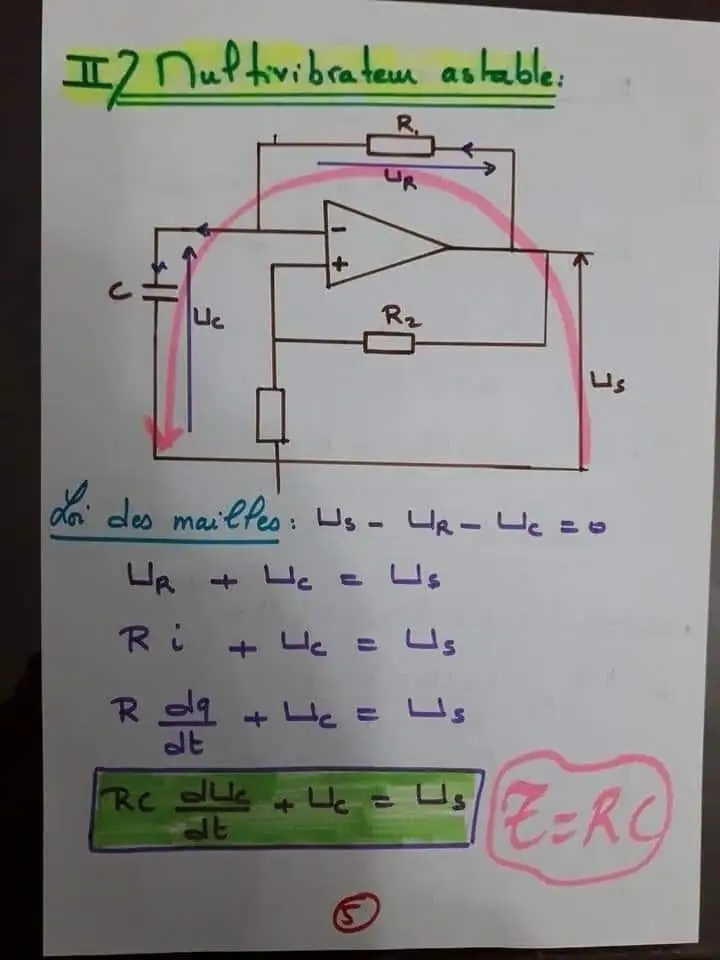 II) Multivibrateur astable:
R1
UR
-
+
C
UC
R2
US
Loi des mailles: US - UR - UC = 0
UR + UC = US
R i + UC = US
R dq/dt + UC = US
RC dUC/dt + UC = US
τ = RC
5